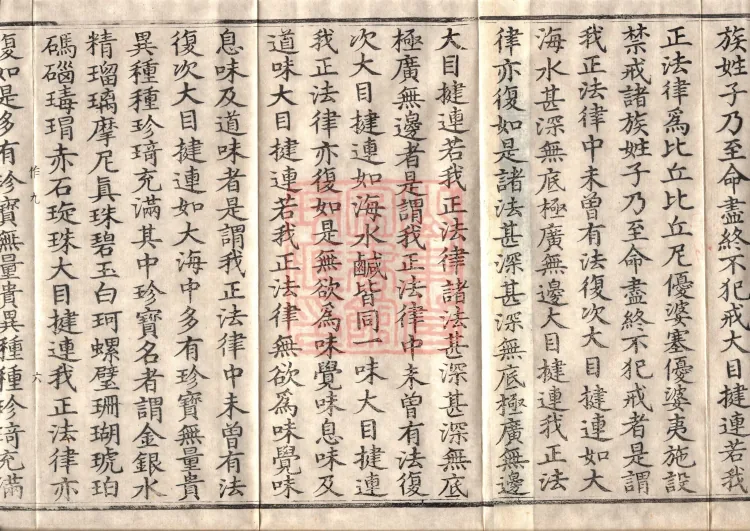 族姓子乃至命盡終不犯戒大目揵連若我
正法律爲比丘比丘尼優婆塞優婆夷施設
禁戒諸族姓子乃至命盡終不犯戒者是謂
我正法律中未曾有法復次大目揵連如大
海水甚深無底極廣無邊大目揵連我正法
律亦復如是諸法甚深甚深無底極廣無邊
大目揵連若我正法律諸法甚深甚深無底
極廣無邊者是謂我正法律中未曾有法復
次大目揵連如海水鹹皆同一味大目揵連
我正法律亦復如是無欲爲味覺味息味及
道味大目揵連若我正法律無欲爲味覺味
息味及道味者是謂我正法律中未曾有法
復次大目揵連如大海中多有珍寶無量貴
異種種珍琦充滿其中珍寶名者謂金銀水
精瑠璃摩尼眞珠碧玉白珂螺璧珊瑚琥珀
碼碯瑇瑁赤石琁珠大目揵連我正法律亦
九 六
復如是多有珍寶無量貴異種種珍琦充滿